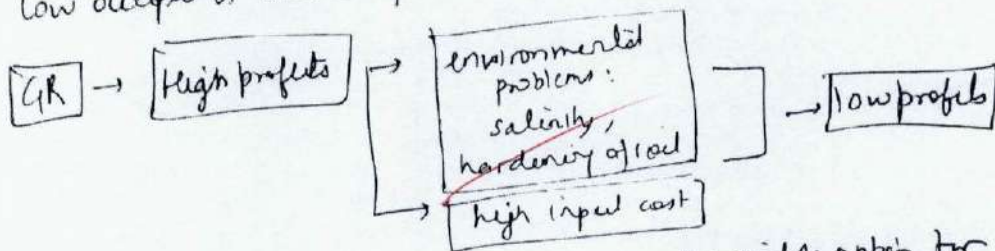 low
GR → High profits
environmental
problems:
salinity,
hardening of soil
high input cost
→ low profits
for